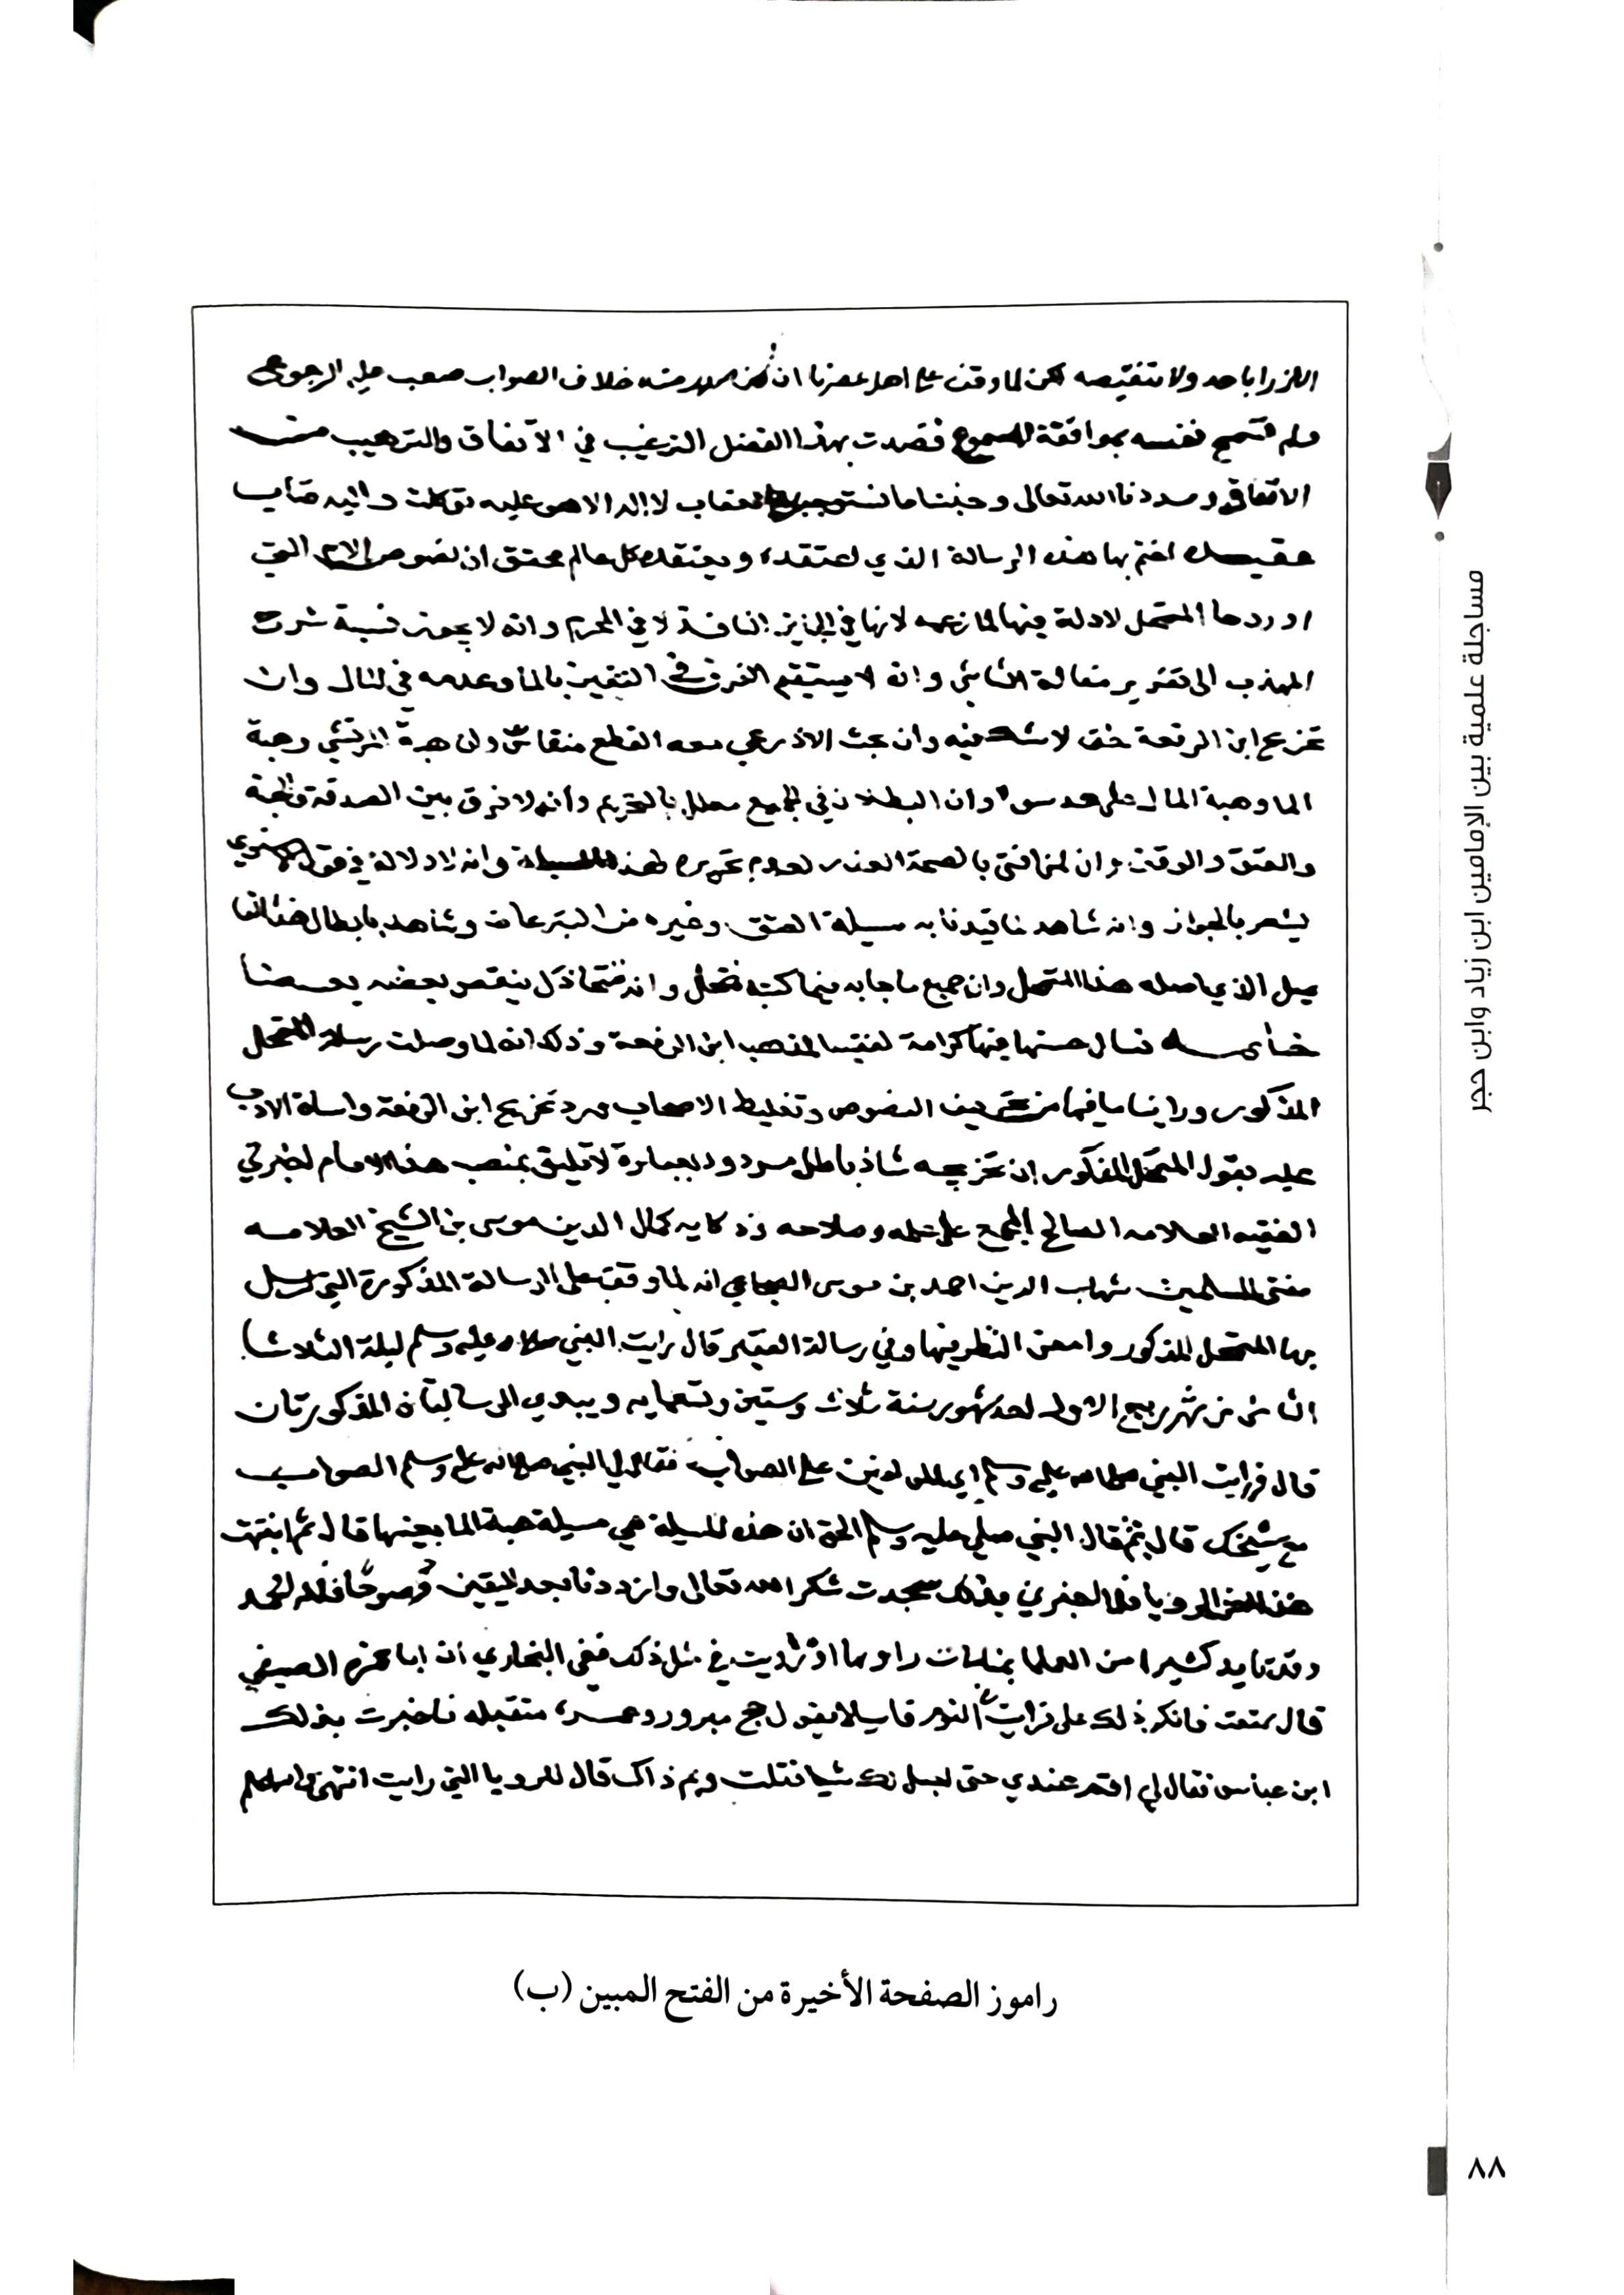 مساجلة علمية بين الإمامين ابن زياد وابن حجر
الازرا باحد ولا تنقيصه لكن لما وقفت على اهل عصرنا ان من منه خلاف الصواب صعب عليه الرجوع
ولم تسمح نفسه بموافقة فقصدت بهذا الفصل الترغيب في الاتفاق والترهيب من
الله تعالى وجنبنا ما نستوجب العقاب لا اله الا هو عليه توكلت واليه متاب
اختم بها هذه الرسالة الذي اعتقده ويعتقده كل عالم محقق ان نصوص الام التي
اوردها المتحمل لا دلالة فيها لما زعمه لانها في الجايز النافذ لا في المحرم وانه لا يجوز نسبة
المهذب الى تقرير مقالة الشاشي وانه لا يستقيم الفرق في التعيين بالماء وعدمه في وان
تخريج ابن الرفعة حق لا شك فيه وان بحث الاذرعي معه القطع وان هبة وهبة
الما وهبة المال على حد سوا وان البطلان في الجميع معلل بالتحريم وانه لا فرق بين الصدقة والهبة
والعتق والوقف وان لمن افتى بالصحة العذر لعدم تحريره لهذه المسيلة وانه لا دلالة في قول الاسنوي
يشعر بالجواز وانه شاهد لنا قيدنا به مسيلة العتق وغيره من التبرعات وشاهد بابطال هذا
الذي اصله هذا المتحمل وان جميع ما جا به فيما كتبه تحمل وانه ينقض بعضه بعضا
خاتمه نسال حسنها فيها كرامة لفقيه المذهب ابن الرفعة وذلك انه لما وصلت رسالة المتحمل
المذكور وراينا ما فيها من تحريف النصوص وتغليط الاصحاب ورد تخريج ابن الرفعة واساة الادب
عليه بقول المتحمل المذكور ان تخريجه شاذ باطل مردود بعبارة لا تليق بمنصب هذا الامام اخبرني
الفقيه العلامه الصالح المجمع على علمه وصلاحه وذكايه كمال الدين موسى بن الشيخ العلامه
مفتى المسلمين شهاب الدين احمد بن موسى انه لما وقف على الرسالة المذكورة التي
بها المتحمل المذكور وامعن النظر فيها وفي رسالة الفقير قال رايت النبي صلى الله عليه وسلم ليلة الثلاثا
من شهر ربيع الاول احد شهور سنة ثلاث وستين وتسعمايه وبيدي الرسالتان المذكورتان
قال فرايت النبي صلى الله عليه وسلم على الصواب فقال لي النبي صلى الله عليه وسلم الصواب
مع شيخك قال ثم قال النبي صلى عليه وسلم الحق ان هذه المسيلة هي مسيلة هبة الما بعينها قال ثم انتهت
هذه الرويا فلما اخبرني بذلك سجدت شكرا لله تعالى وازددنا بعد اليقين وضوحا فلله الحمد
وقد تايد كثيرا من العلما بمنامات راوها او رويت في مثل ذلك ففي البخاري ان ابا حمزه
قال تمتعت فانكر ذلك علي فرايت في النوم قايلا يقول حج مبرور وعمرة متقبله فاخبرت بذلك
ابن عباس فقال لي اقم عندي حتى اجعل لك شيا فقلت وبم ذاك قال للرويا التي رايت انتهى
راموز الصفحة الأخيرة من الفتح المبين (ب)
٨٨